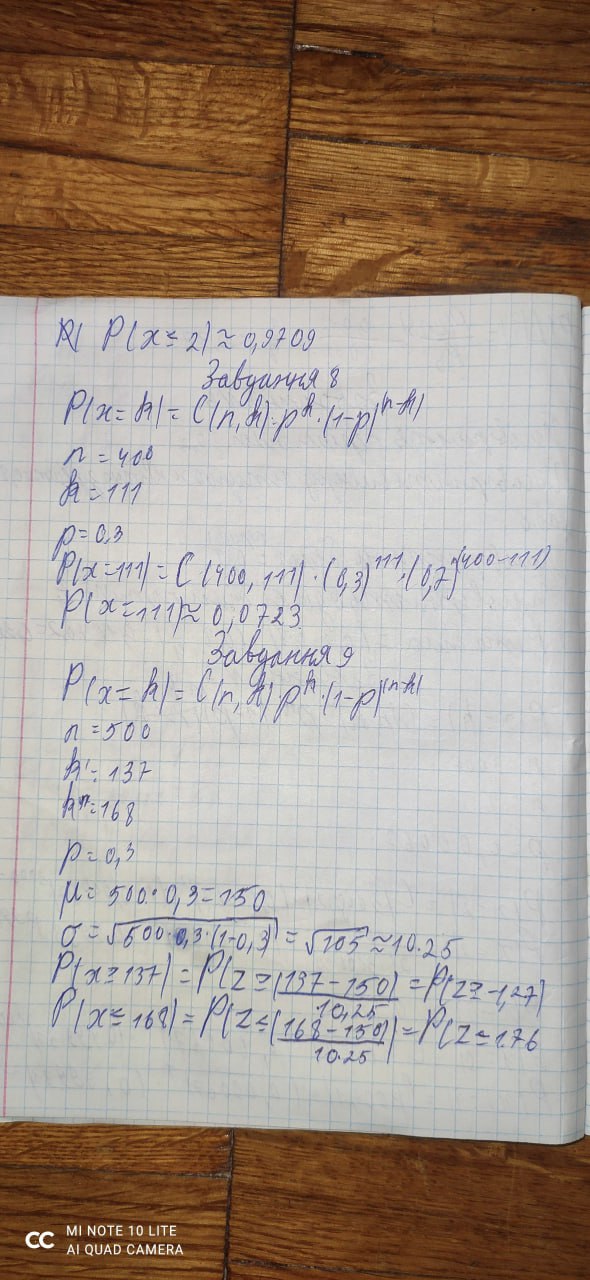 P(x≤2)≈0,9709
Завдання 8
P(x=k)=C(n,k)·p^k·(1-p)^(n-k)
n=400
k=111
p=0,3
P(x=111)=C(400,111)·(0,3)^111·(0,7)^(400-111)
P(x=111)≈0,0723
Завдання 9
P(x=k)=C(n,k)p^k·(1-p)^(n-k)
n=500
k'=137
k"=168
p=0,3
μ=500·0,3=150
σ=√500·0,3·(1-0,3)=√105≈10.25
P(x≥137)=P(z≥(137-150)/10,25=P(z≥-1,27)
P(x≤168)=P(z≤(168-150)/10.25=P(z≤1.76
CC MI NOTE 10 LITE
AI QUAD CAMERA